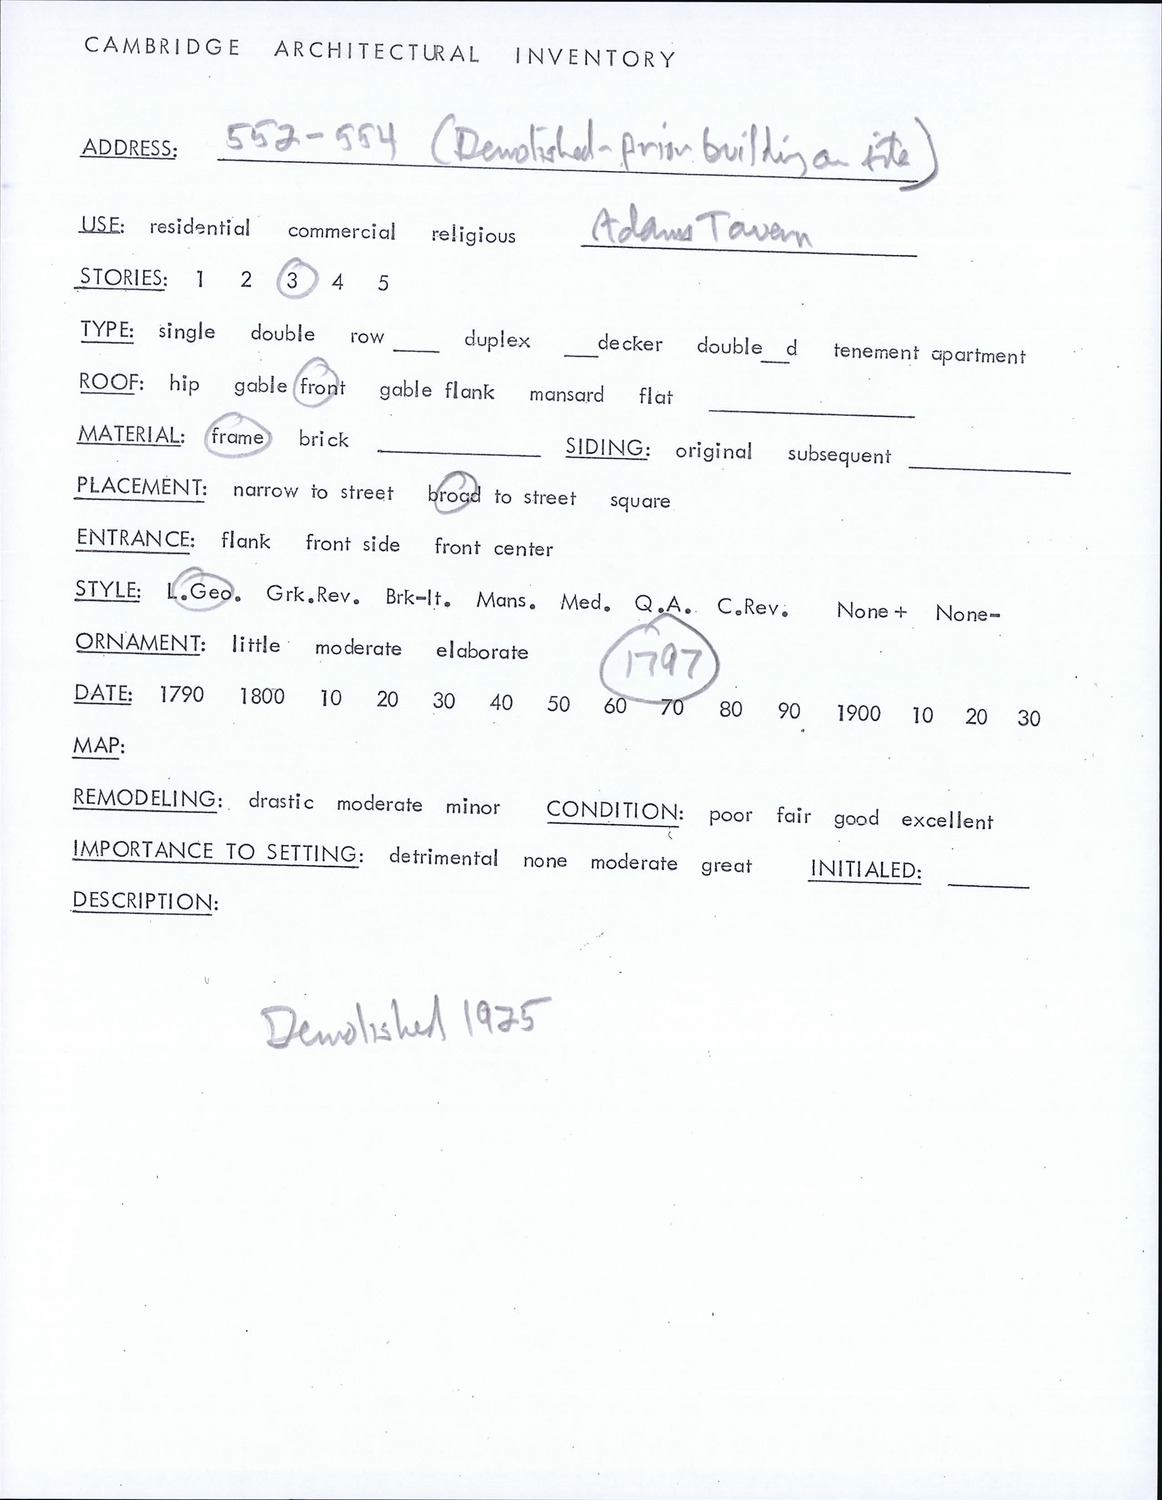 CAMBRIDGE ARCHITECTURAL INVENTORY
ADDRESS: 552-554 (Demolished - prior building on site)
USE: residential commercial religious Adams Tavern
STORIES: 1 2 3 4 5
TYPE: single double row ___ duplex ___decker double__d tenement apartment
ROOF: hip gable front gable flank mansard flat
MATERIAL: frame brick SIDING: original subsequent
PLACEMENT: narrow to street broad to street square
ENTRANCE: flank front side front center
STYLE: L.Geo. Grk.Rev. Brk-It. Mans. Med. Q.A. C.Rev. None+ None-
ORNAMENT: little moderate elaborate 1797
DATE: 1790 1800 10 20 30 40 50 60 70 80 90 1900 10 20 30
MAP:
REMODELING: drastic moderate minor CONDITION: poor fair good excellent
IMPORTANCE TO SETTING: detrimental none moderate great INITIALED:
DESCRIPTION:
Demolished 1925